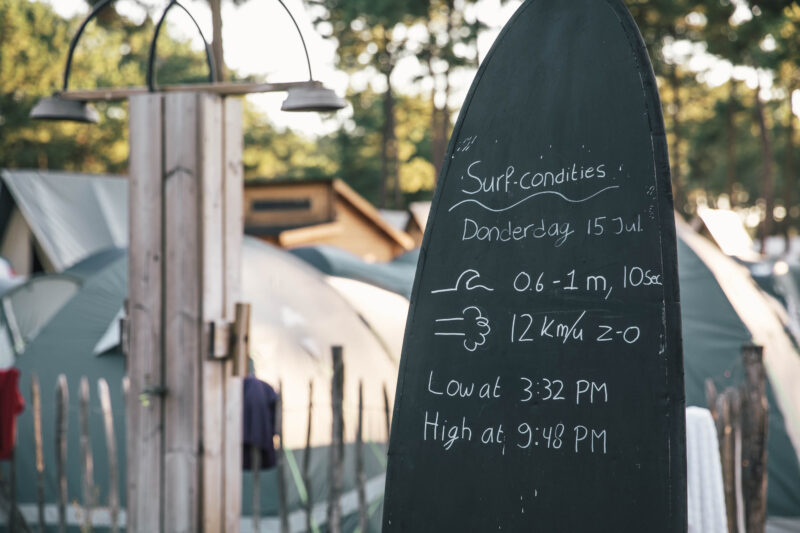 Surf-condities
Donderdag 15 Jul.
0.6-1m, 10Sec
12 km/u z-o
Low at 3:32 PM
High at 9:48 PM